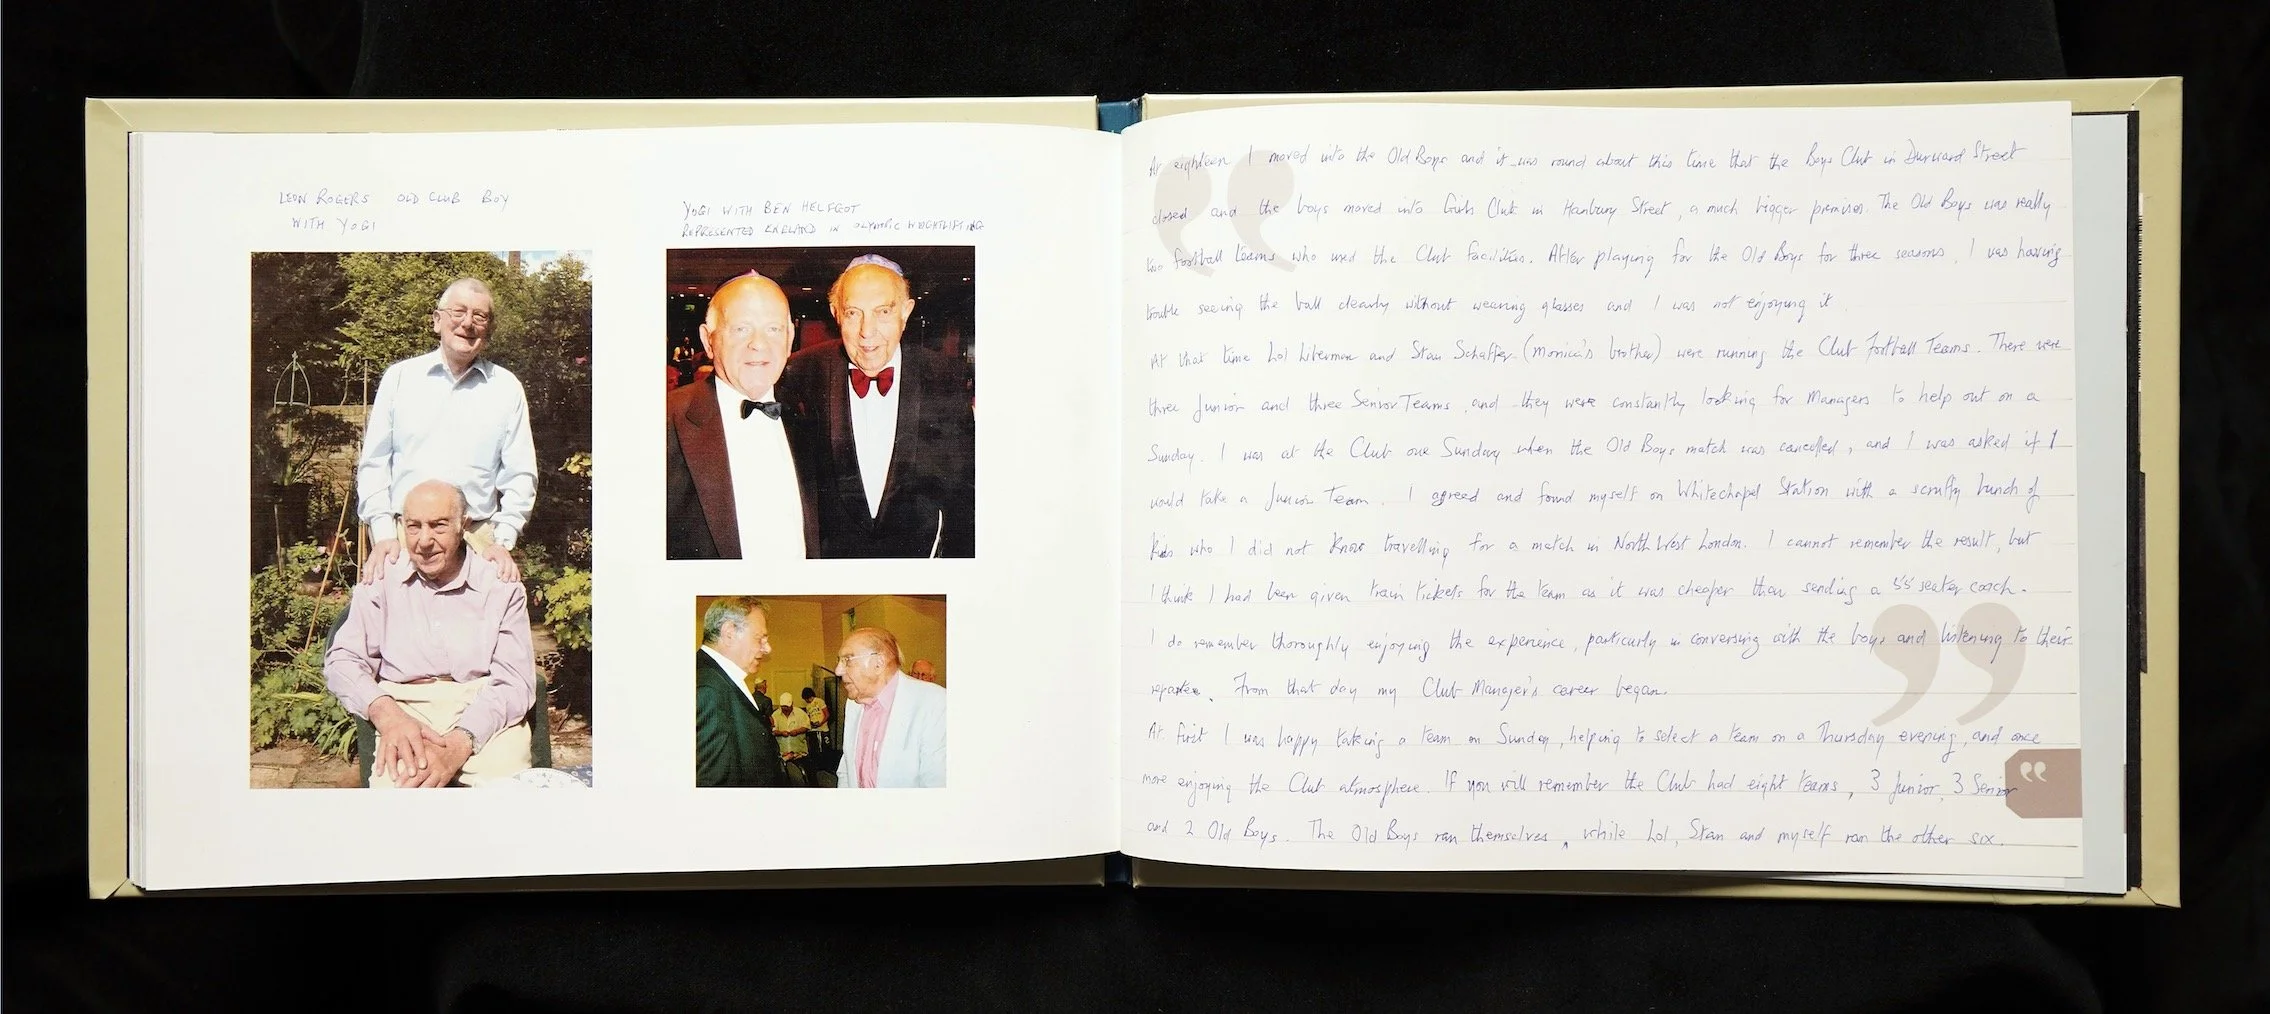 LEON ROGERS OLD CLUB BOY
WITH YOGI
YOGI WITH BEN HELFGOT
REPRESENTED ENGLAND IN OLYMPIC WEIGHTLIFTING
At eighteen I moved into the Old Boys and it was round about this time that the Boys Club in Durward Street
closed and the boys moved into Girls Club in Hanbury Street, a much bigger premises. The Old Boys was really
two football teams who used the Club facilities. After playing for the Old Boys for three seasons, I was having
trouble seeing the ball clearly without wearing glasses and I was not enjoying it.
At that time Lol Liberman and Stan Schaffer (Monica's brother) were running the Club Football Teams. There were
three Junior and three Senior Teams, and they were constantly looking for Managers to help out on a
Sunday. I was at the Club one Sunday when the Old Boys match was cancelled, and I was asked if I
would take a Junior Team. I agreed and found myself on Whitechapel Station with a scruffy bunch of
kids who I did not know travelling for a match in North West London. I cannot remember the result, but
I think I had been given train tickets for the team as it was cheaper than sending a 55 seater coach.
I do remember thoroughly enjoying the experience, particurly in conversing with the boys and listening to their
repartee. From that day my Club Manager's career began.
At first I was happy taking a team on Sunday, helping to select a team on a Thursday evening, and once
more enjoying the Club atmosphere. If you will remember the Club had eight teams, 3 Junior, 3 Senior
and 2 Old Boys. The Old Boys ran themselves, while Lol, Stan and myself ran the other six.